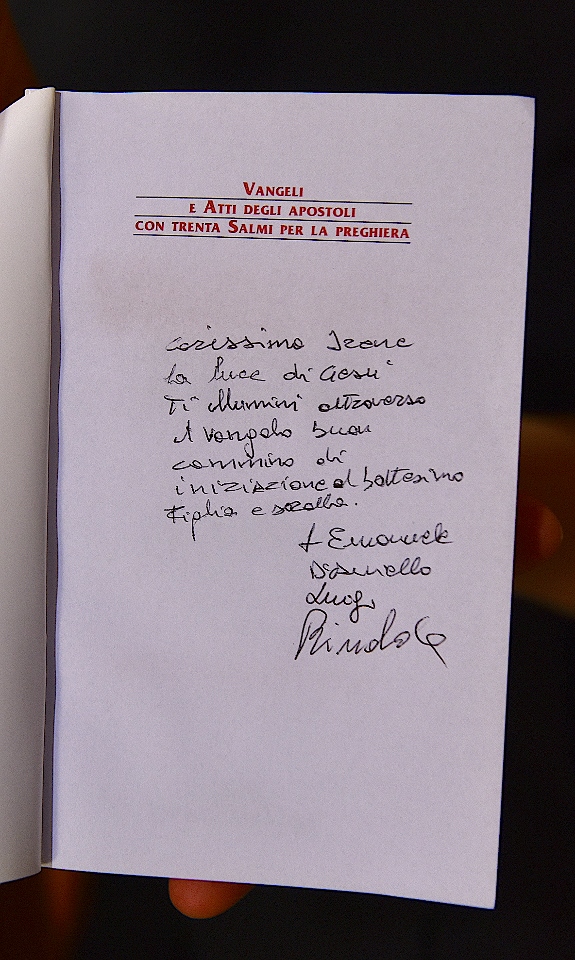 VANGELI
E ATTI DEGLI APOSTOLI
CON TRENTA SALMI PER LA PREGHIERA
carissima Irene
la luce di Gesù
Ti illumini attraverso
il vangelo buon
cammino di
iniziazione al battesimo
figlia e sorella.
+ Emanuele